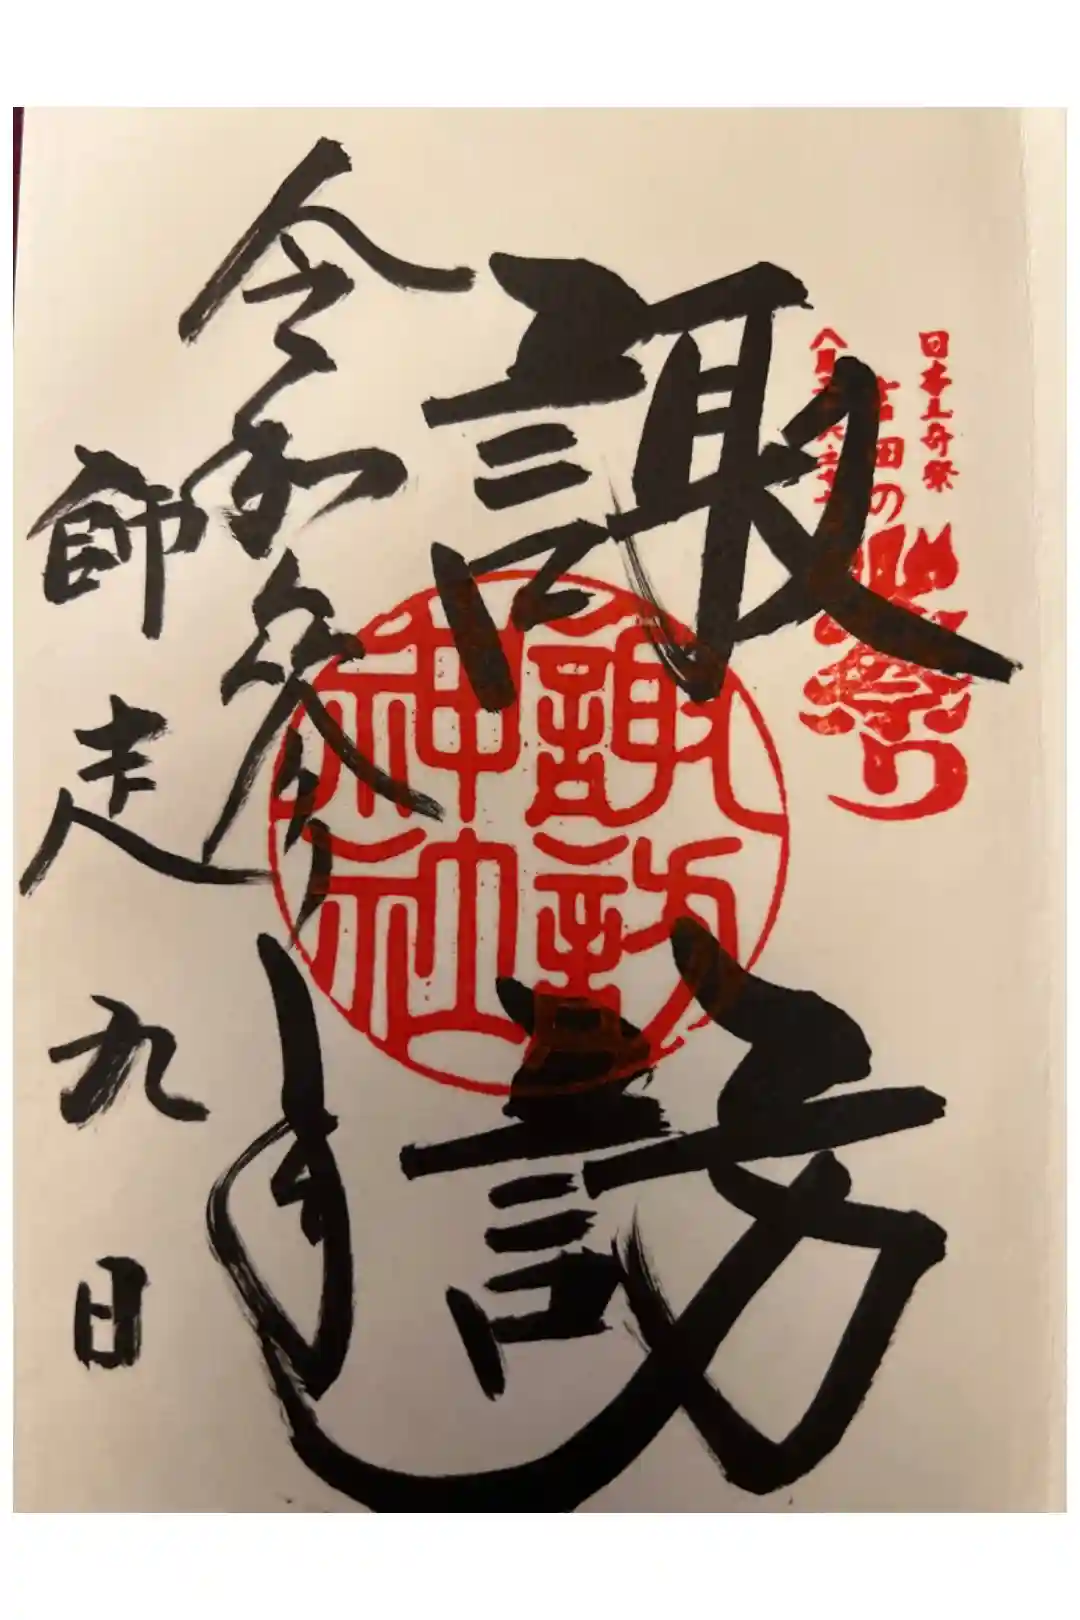 日本三奇祭
吉田の火祭り
八月
諏訪
諏訪
神社
令和参年
師走九日